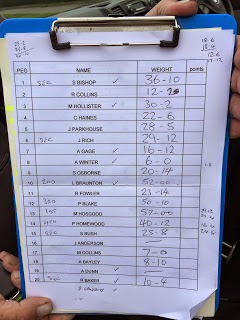 PEG NAME WEIGHT points
1 SEC S BISHOP ✓ 36-10
2 R COLLINS 12-
3 M HOLLISTER ✓ 30-2
4 C HAINES 22-6
5 J PARKHOUSE 28-5
6 SEC J RICH 29-12
7 A GAGE ✓ 16-12
8 A WINTER ✓ 6-0
9 S OSBORNE 20-14
10 2ND L BRAUNTON ✓ 52-00
11 R FOWLER 23-14
12 3RD P BLAKE 50-10
13 1ST M HOSGOOD 57-00
14 4TH P HOMEWOOD 40-12
15 SEC S BUSH 25-8
16 J ANDERSON
17 M COLLINS 7-0
18 A BAYLEY 8-10
19 A DUNN ✓
20 SEC R BAKER ✓ 10-4